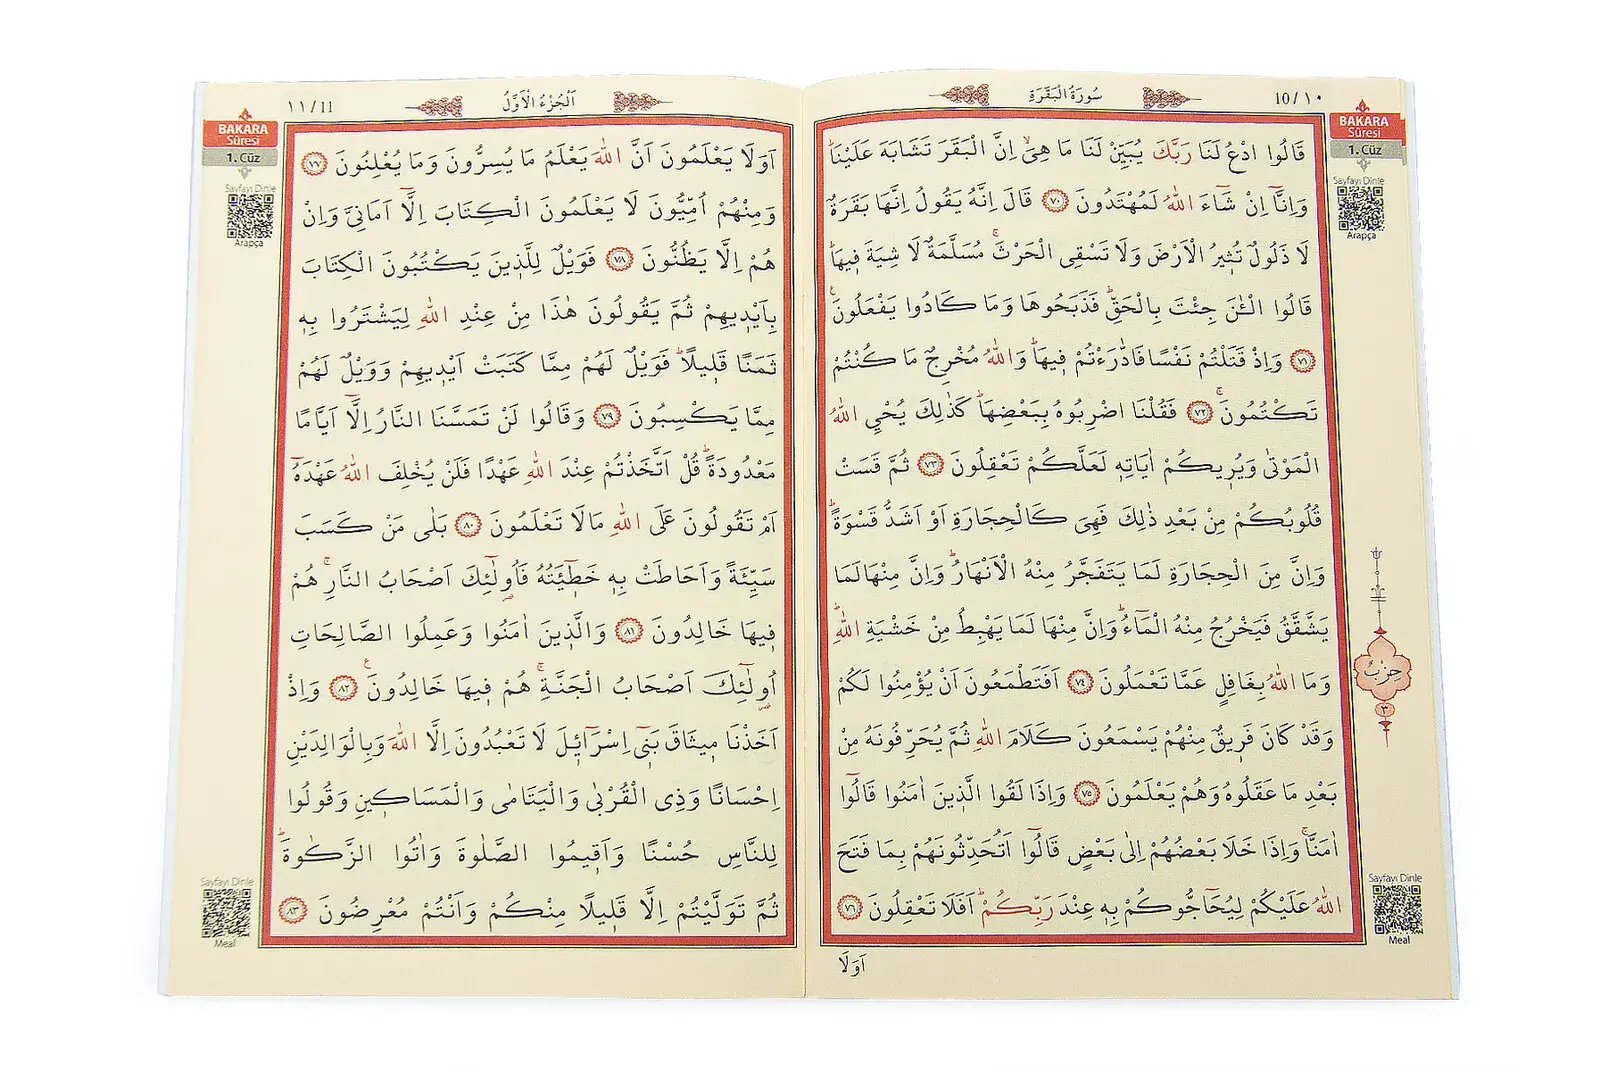 10/١٠
سُورَةُ الْبَقَرَةِ
BAKARA
Sûresi
1. Cüz
Sayfayı Dinle
Arapça
قَالُوا ادْعُ لَنَا رَبَّكَ يُبَيِّنْ لَنَا مَا هِيَۙ اِنَّ الْبَقَرَ تَشَابَهَ عَلَيْنَاۜ
وَاِنَّٓا اِنْ شَٓاءَ اللّٰهُ لَمُهْتَدُونَ ﴿٧٠﴾ قَالَ اِنَّهُ يَقُولُ اِنَّهَا بَقَرَةٌ
لَا ذَلُولٌ تُث۪يرُ الْاَرْضَ وَلَا تَسْقِى الْحَرْثَۚ مُسَلَّمَةٌ لَا شِيَةَ ف۪يهَاۜ
قَالُوا الْـٰٔنَ جِئْتَ بِالْحَقِّۜ فَذَبَحُوهَا وَمَا كَادُوا يَفْعَلُونَ۟
﴿٧١﴾ وَاِذْ قَتَلْتُمْ نَفْسًا فَادّٰرَءْتُمْ ف۪يهَاۜ وَاللّٰهُ مُخْرِجٌ مَا كُنْتُمْ
تَكْتُمُونَۚ ﴿٧٢﴾ فَقُلْنَا اضْرِبُوهُ بِبَعْضِهَاۜ كَذٰلِكَ يُحْيِ اللّٰهُ
الْمَوْتٰى وَيُر۪يكُمْ اٰيَاتِه۪ لَعَلَّكُمْ تَعْقِلُونَ ﴿٧٣﴾ ثُمَّ قَسَتْ
قُلُوبُكُمْ مِنْ بَعْدِ ذٰلِكَ فَهِىَ كَالْحِجَارَةِ اَوْ اَشَدُّ قَسْوَةًۜ
وَاِنَّ مِنَ الْحِجَارَةِ لَمَا يَتَفَجَّرُ مِنْهُ الْاَنْهَارُۜ وَاِنَّ مِنْهَا لَمَا
يَشَّقَّقُ فَيَخْرُجُ مِنْهُ الْمَٓاءُۜ وَاِنَّ مِنْهَا لَمَا يَهْبِطُ مِنْ خَشْيَةِ اللّٰهِۜ
وَمَا اللّٰهُ بِغَافِلٍ عَمَّا تَعْمَلُونَ ﴿٧٤﴾ اَفَتَطْمَعُونَ اَنْ يُؤْمِنُوا لَكُمْ
وَقَدْ كَانَ فَر۪يقٌ مِنْهُمْ يَسْمَعُونَ كَلَامَ اللّٰهِ ثُمَّ يُحَرِّفُونَهُ مِنْ
بَعْدِ مَا عَقَلُوهُ وَهُمْ يَعْلَمُونَ ﴿٧٥﴾ وَاِذَا لَقُوا الَّذ۪ينَ اٰمَنُوا قَالُٓوا
اٰمَنَّاۚ وَاِذَا خَلَا بَعْضُهُمْ اِلٰى بَعْضٍ قَالُٓوا اَتُحَدِّثُونَهُمْ بِمَا فَتَحَ
اللّٰهُ عَلَيْكُمْ لِيُحَٓاجُّوكُمْ بِه۪ عِنْدَ رَبِّكُمْۜ اَفَلَا تَعْقِلُونَ ﴿٧٦﴾
حِزْبٌ
٣
Sayfayı Dinle
Meal
اَوَلَا
اَلْجُزْءُ الْاَوَّلُ
١١/11
BAKARA
Sûresi
1. Cüz
Sayfayı Dinle
Arapça
اَوَلَا يَعْلَمُونَ اَنَّ اللّٰهَ يَعْلَمُ مَا يُسِرُّونَ وَمَا يُعْلِنُونَ ﴿٧٧﴾
وَمِنْهُمْ اُمِّيُّونَ لَا يَعْلَمُونَ الْكِتَابَ اِلَّٓا اَمَانِيَّ وَاِنْ
هُمْ اِلَّا يَظُنُّونَ ﴿٧٨﴾ فَوَيْلٌ لِلَّذ۪ينَ يَكْتُبُونَ الْكِتَابَ
بِاَيْد۪يهِمْ ثُمَّ يَقُولُونَ هٰذَا مِنْ عِنْدِ اللّٰهِ لِيَشْتَرُوا بِه۪
ثَمَنًا قَل۪يلًاۜ فَوَيْلٌ لَهُمْ مِمَّا كَتَبَتْ اَيْد۪يهِمْ وَوَيْلٌ لَهُمْ
مِمَّا يَكْسِبُونَ ﴿٧٩﴾ وَقَالُوا لَنْ تَمَسَّنَا النَّارُ اِلَّٓا اَيَّامًا
مَعْدُودَةًۜ قُلْ اَتَّخَذْتُمْ عِنْدَ اللّٰهِ عَهْدًا فَلَنْ يُخْلِفَ اللّٰهُ عَهْدَهُٓ
اَمْ تَقُولُونَ عَلَى اللّٰهِ مَا لَا تَعْلَمُونَ ﴿٨٠﴾ بَلٰى مَنْ كَسَبَ
سَيِّئَةً وَاَحَاطَتْ بِه۪ خَط۪ٓيـَٔتُهُ فَاُو۬لٰٓئِكَ اَصْحَابُ النَّارِۚ هُمْ
ف۪يهَا خَالِدُونَ ﴿٨١﴾ وَالَّذ۪ينَ اٰمَنُوا وَعَمِلُوا الصَّالِحَاتِ
اُو۬لٰٓئِكَ اَصْحَابُ الْجَنَّةِۚ هُمْ ف۪يهَا خَالِدُونَ۟ ﴿٨٢﴾ وَاِذْ
اَخَذْنَا م۪يثَاقَ بَن۪ٓي اِسْرَٓائ۪لَ لَا تَعْبُدُونَ اِلَّا اللّٰهَ وَبِالْوَالِدَيْنِ
اِحْسَانًا وَذِى الْقُرْبٰى وَالْيَتَامٰى وَالْمَسَاك۪ينِ وَقُولُوا
لِلنَّاسِ حُسْنًا وَاَق۪يمُوا الصَّلٰوةَ وَاٰتُوا الزَّكٰوةَۜ
ثُمَّ تَوَلَّيْتُمْ اِلَّا قَل۪يلًا مِنْكُمْ وَاَنْتُمْ مُعْرِضُونَ ﴿٨٣﴾
Sayfayı Dinle
Meal